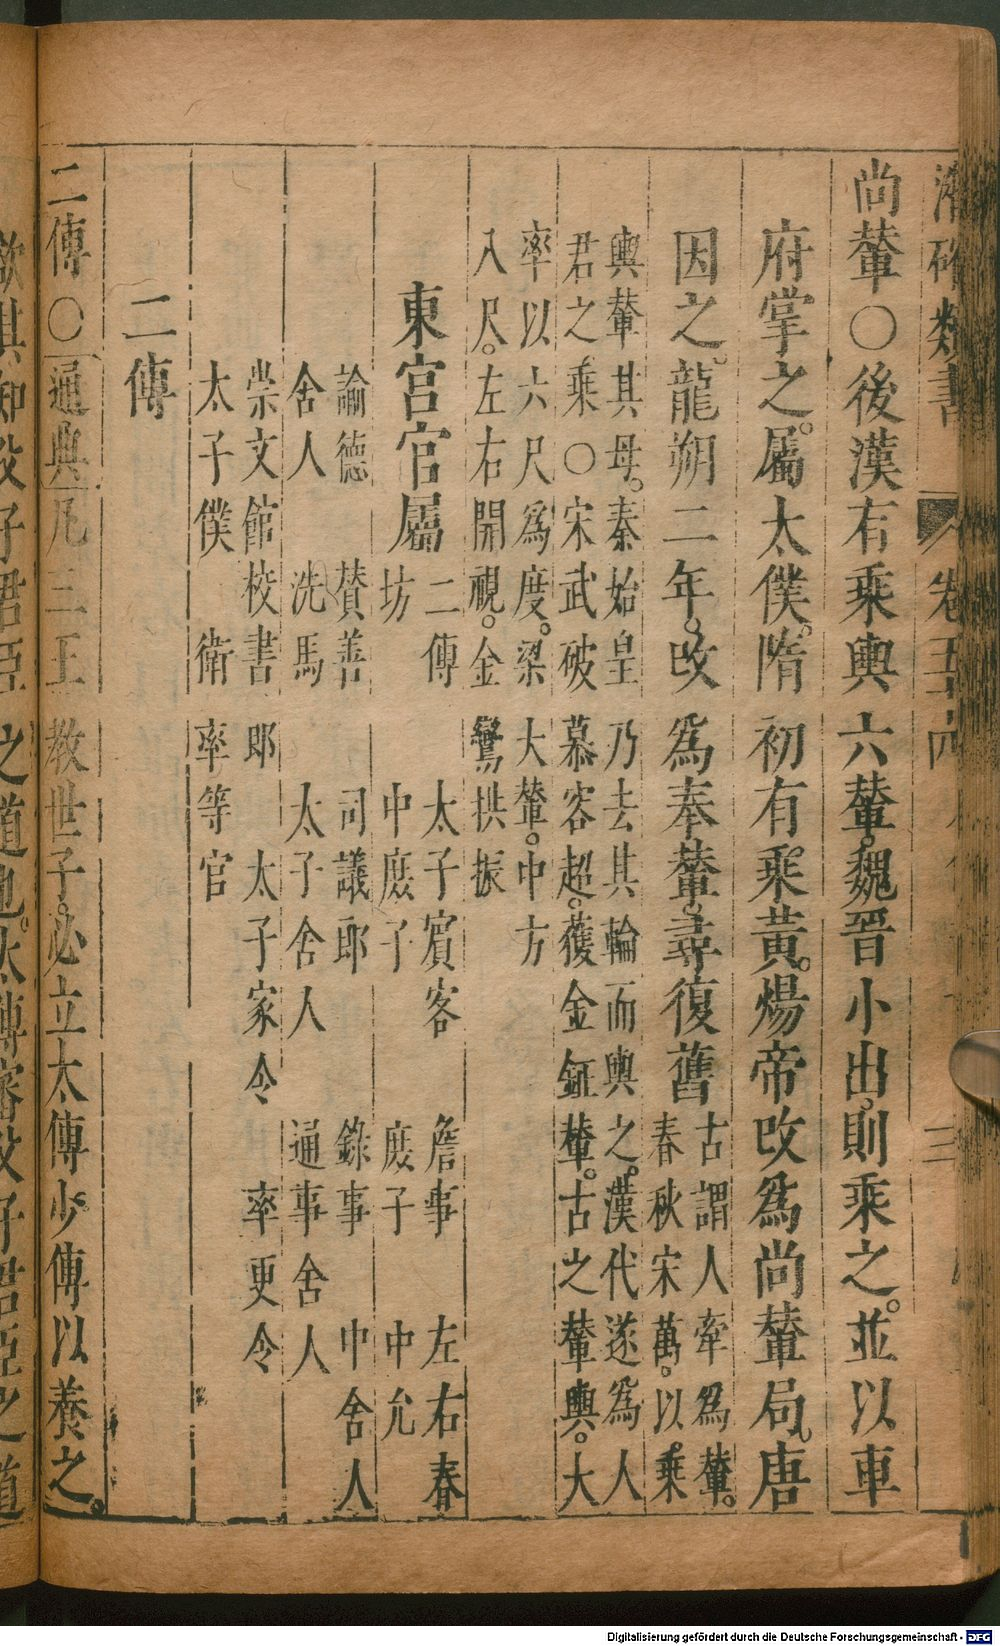 潛確類書 卷五十六 三
尚輦〇後漢有乘輿六輦。魏晉小出。則乘之。並以車
府掌之。屬太僕。隋初有乘黃。煬帝改爲尚輦局。唐
因之。龍朔二年。改爲奉輦。尋復舊
古謂人牽爲輦。
春秋宋萬。以乘
輿輦其母。秦始皇乃去其輪而輿之。漢代遂爲人
君之乘〇宋武破慕容超。獲金鉦輦。古之輦輿。大
率以六尺爲度。梁大輦。中方
八尺。左右開視。金鸞拱振
東宮官屬
二傳 太子賓客 詹事 左右春
坊 中庶子 庶子 中允
諭德 賛善 司議郎 錄事 中舍人
舍人 洗馬 太子舍人 通事舍人
崇文館校書郎 太子家令 率更令
太子僕 衛率等官
二傳
二傳〇通典凡三王教世子。必立太傅少傅以養之。
欲其知父子君臣之道也。太傅審父子君臣之道
Digitalisierung gefördert durch die Deutsche Forschungsgemeinschaft - DFG